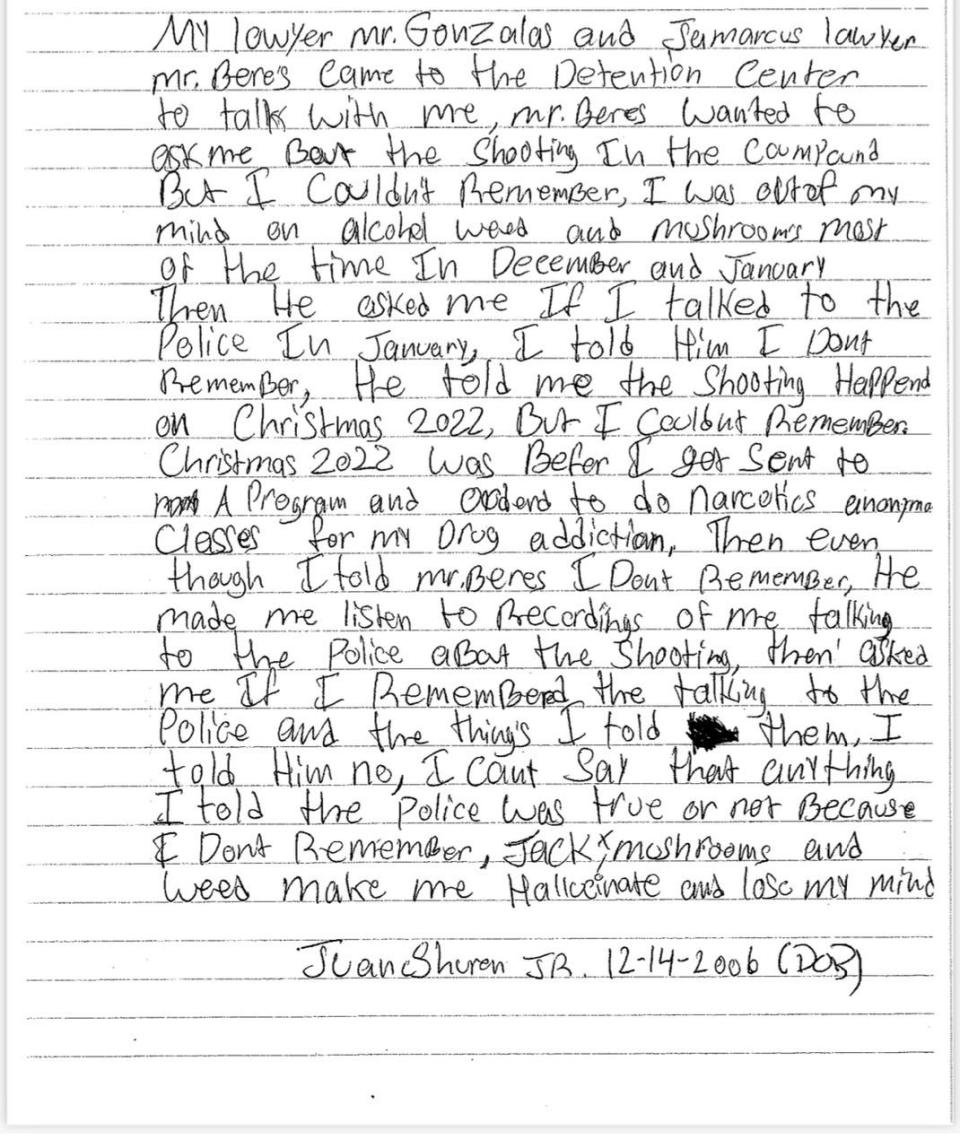 My lawyer mr. Gonzalas and Jamarcus lawyer
mr. Beres came to the Detention Center
to talk with me, mr. Beres wanted to
ask me Bout the Shooting In the Coumpound
But I Couldn't Remember, I was out of my
mind on alcohol weed and mushrooms most
of the time In December and January
Then He asked me If I talked to the
Police In January, I told Him I Dont
Remember, He told me the Shooting Happend
on Christmas 2022, But I Couldnt Remember.
Christmas 2022 was Befer I got Sent to
A Program and orderd to do narcotics anonyme
Classes for my Drug addiction, Then even
though I told mr. Beres I Dont Remember, He
made me listen to Recordings of me talking
to the Police about the Shooting, then asked
me If I Remembered the talking to the
Police and the thing's I told them, I
told Him no, I Cant Say that anything
I told the Police was true or not Because
I Dont Remember, Jack, mushrooms and
weed make me Hallucinate and lose my mind
JR. 12-14-2006 (DOB)